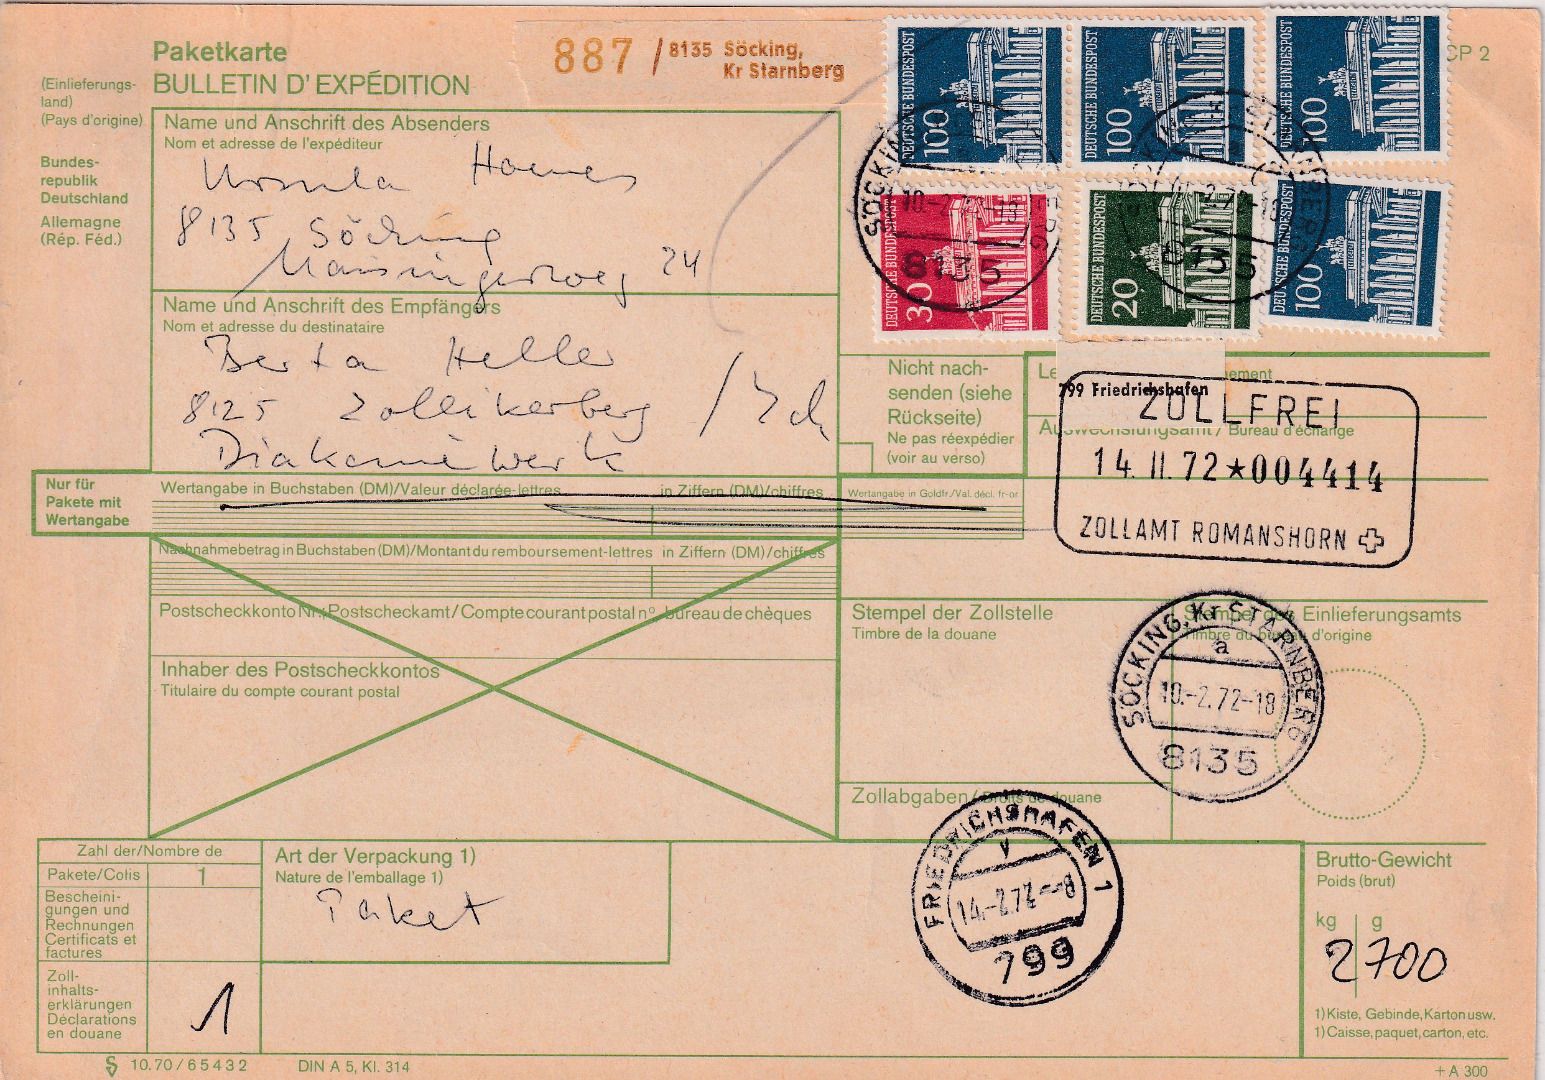 Paketkarte
BULLETIN D'EXPÉDITION
887 / 8135 Söcking,
Kr Starnberg
CP 2
(Einlieferungs-
land)
(Pays d'origine)
Bundes-
republik
Deutschland
Allemagne
(Rép. Féd.)
Name und Anschrift des Absenders
Nom et adresse de l'expéditeur
Ursula
8135 Söcking
Maisingerweg 24
Name und Anschrift des Empfängers
Nom et adresse du destinataire
Berta Heller
8125 Zollikerberg / Zch
Diakoniewerk
DEUTSCHE BUNDESPOST 100
DEUTSCHE BUNDESPOST 100
DEUTSCHE BUNDESPOST 100
DEUTSCHE BUNDESPOST 30
DEUTSCHE BUNDESPOST 20
DEUTSCHE BUNDESPOST 100
8135
8135
Nicht nach-
senden (siehe
Rückseite)
Ne pas réexpédier
(voir au verso)
799 Friedrichshafen
Auswechslungsamt / Bureau d'échange
ZOLLFREI
14. II. 72 ★004414
ZOLLAMT ROMANSHORN
Nur für
Pakete mit
Wertangabe
Wertangabe in Buchstaben (DM)/Valeur déclarée-lettres in Ziffern (DM)/chiffres
Wertangabe in Goldfr./Val. décl. fr-or
Nachnahmebetrag in Buchstaben (DM)/Montant du remboursement-lettres in Ziffern (DM)/chiffres
Postscheckkonto Nr./Postscheckamt/Compte courant postal n° bureau de chèques
Inhaber des Postscheckkontos
Titulaire du compte courant postal
Stempel der Zollstelle
Timbre de la douane
Stempel des Einlieferungsamts
Timbre du bureau d'origine
SÖCKING, Kr STARNBERG
a
10.-2.72-18
8135
Zollabgaben / Droits de douane
FRIEDRICHSHAFEN 1
y
14.-2.72--8
799
Zahl der/Nombre de
Pakete/Colis 1
Bescheini-
gungen und
Rechnungen
Certificats et
factures
Zoll-
inhalts-
erklärungen
Déclarations
en douane
1
Art der Verpackung 1)
Nature de l'emballage 1)
Paket
Brutto-Gewicht
Poids (brut)
kg g
2 700
1) Kiste, Gebinde, Karton usw.
1) Caisse, paquet, carton, etc.
10.70/65432 DIN A 5, Kl. 314
+ A 300